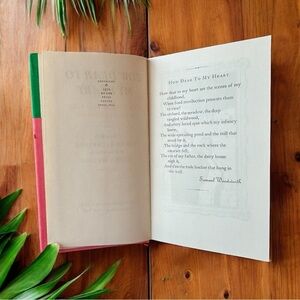 How Dear To My Heart
How dear to my heart are the scenes of my
childhood,
When fond recollection presents them
to view!
The orchard, the meadow, the deep
tangled wildwood,
And every loved spot which my infancy
knew,
The wide-spreading pond and the mill that
stood by it,
The bridge and the rock where the
cataract fell;
The cot of my father, the dairy house
nigh it,
And e'en the rude bucket that hung in
the well.
Samuel Woodworth